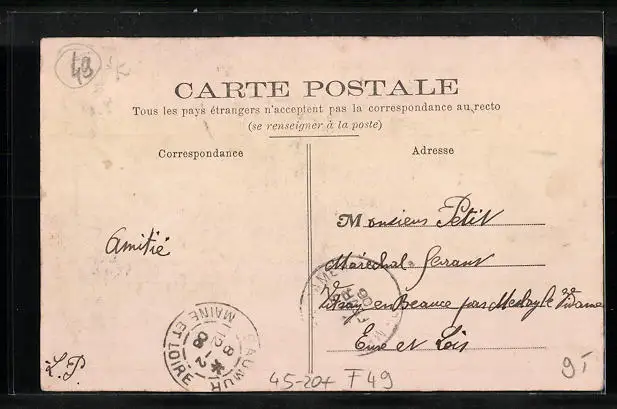 49
CARTE POSTALE
Tous les pays étrangers n'acceptent pas la correspondance au recto
(se renseigner à la poste)
Correspondance
Adresse
Amitié
L. P.
Monsieur Petit
Maréchal ferrant
Viray en Beauce par Meslay le Vidame
Eure et Loir
SAUMUR
MAINE ET LOIRE
45-20+ F 49
9F